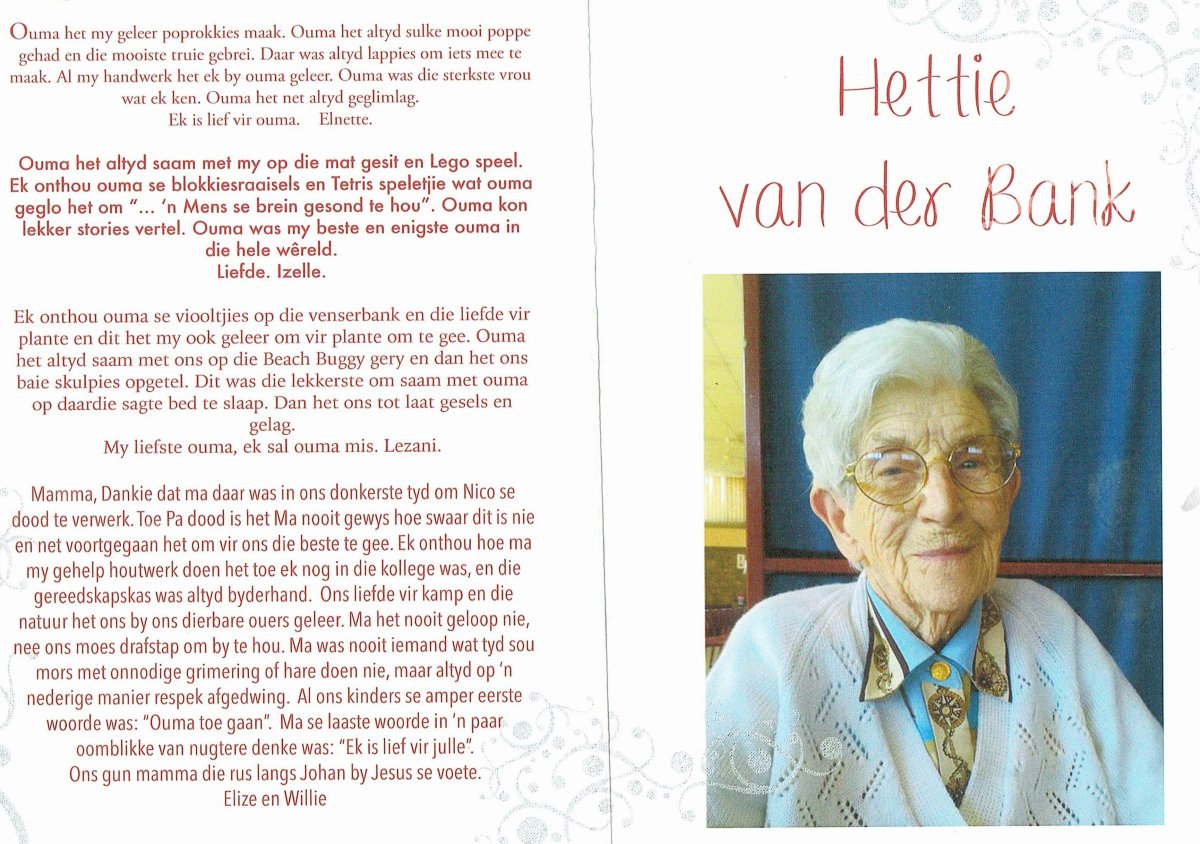 Ouma het my geleer poprokkies maak. Ouma het altyd sulke mooi poppe
gehad en die mooiste truie gebrei. Daar was altyd lappies om iets mee te
maak. Al my handwerk het ek by ouma geleer. Ouma was die sterkste vrou
wat ek ken. Ouma het net altyd geglimlag.
Ek is lief vir ouma. Elnette.
Ouma het altyd saam met my op die mat gesit en Lego speel.
Ek onthou ouma se blokkiesraaisels en Tetris speletjie wat ouma
geglo het om “... ‘n Mens se brein gesond te hou”. Ouma kon
lekker stories vertel. Ouma was my beste en enigste ouma in
die hele wêreld.
Liefde. Izelle.
Ek onthou ouma se viooltjies op die venserbank en die liefde vir
plante en dit het my ook geleer om vir plante om te gee. Ouma
het altyd saam met ons op die Beach Buggy gery en dan het ons
baie skulpies opgetel. Dit was die lekkerste om saam met ouma
op daardie sagte bed te slaap. Dan het ons tot laat gesels en
gelag.
My liefste ouma, ek sal ouma mis. Lezani.
Mamma, Dankie dat ma daar was in ons donkerste tyd om Nico se
dood te verwerk. Toe Pa dood is het Ma nooit gewys hoe swaar dit is nie
en net voortgegaan het om vir ons die beste te gee. Ek onthou hoe ma
my gehelp houtwerk doen het toe ek nog in die kollege was, en die
gereedskapskas was altyd byderhand. Ons liefde vir kamp en die
natuur het ons by ons dierbare ouers geleer. Ma het nooit geloop nie,
nee ons moes drafstap om by te hou. Ma was nooit iemand wat tyd sou
mors met onnodige grimering of hare doen nie, maar altyd op ‘n
nederige manier respek afgedwing. Al ons kinders se amper eerste
woorde was: “Ouma toe gaan”. Ma se laaste woorde in ‘n paar
oomblikke van nugtere denke was: “Ek is lief vir julle”.
Ons gun mamma die rus langs Johan by Jesus se voete.
Elize en Willie
Hettie
van der Bank